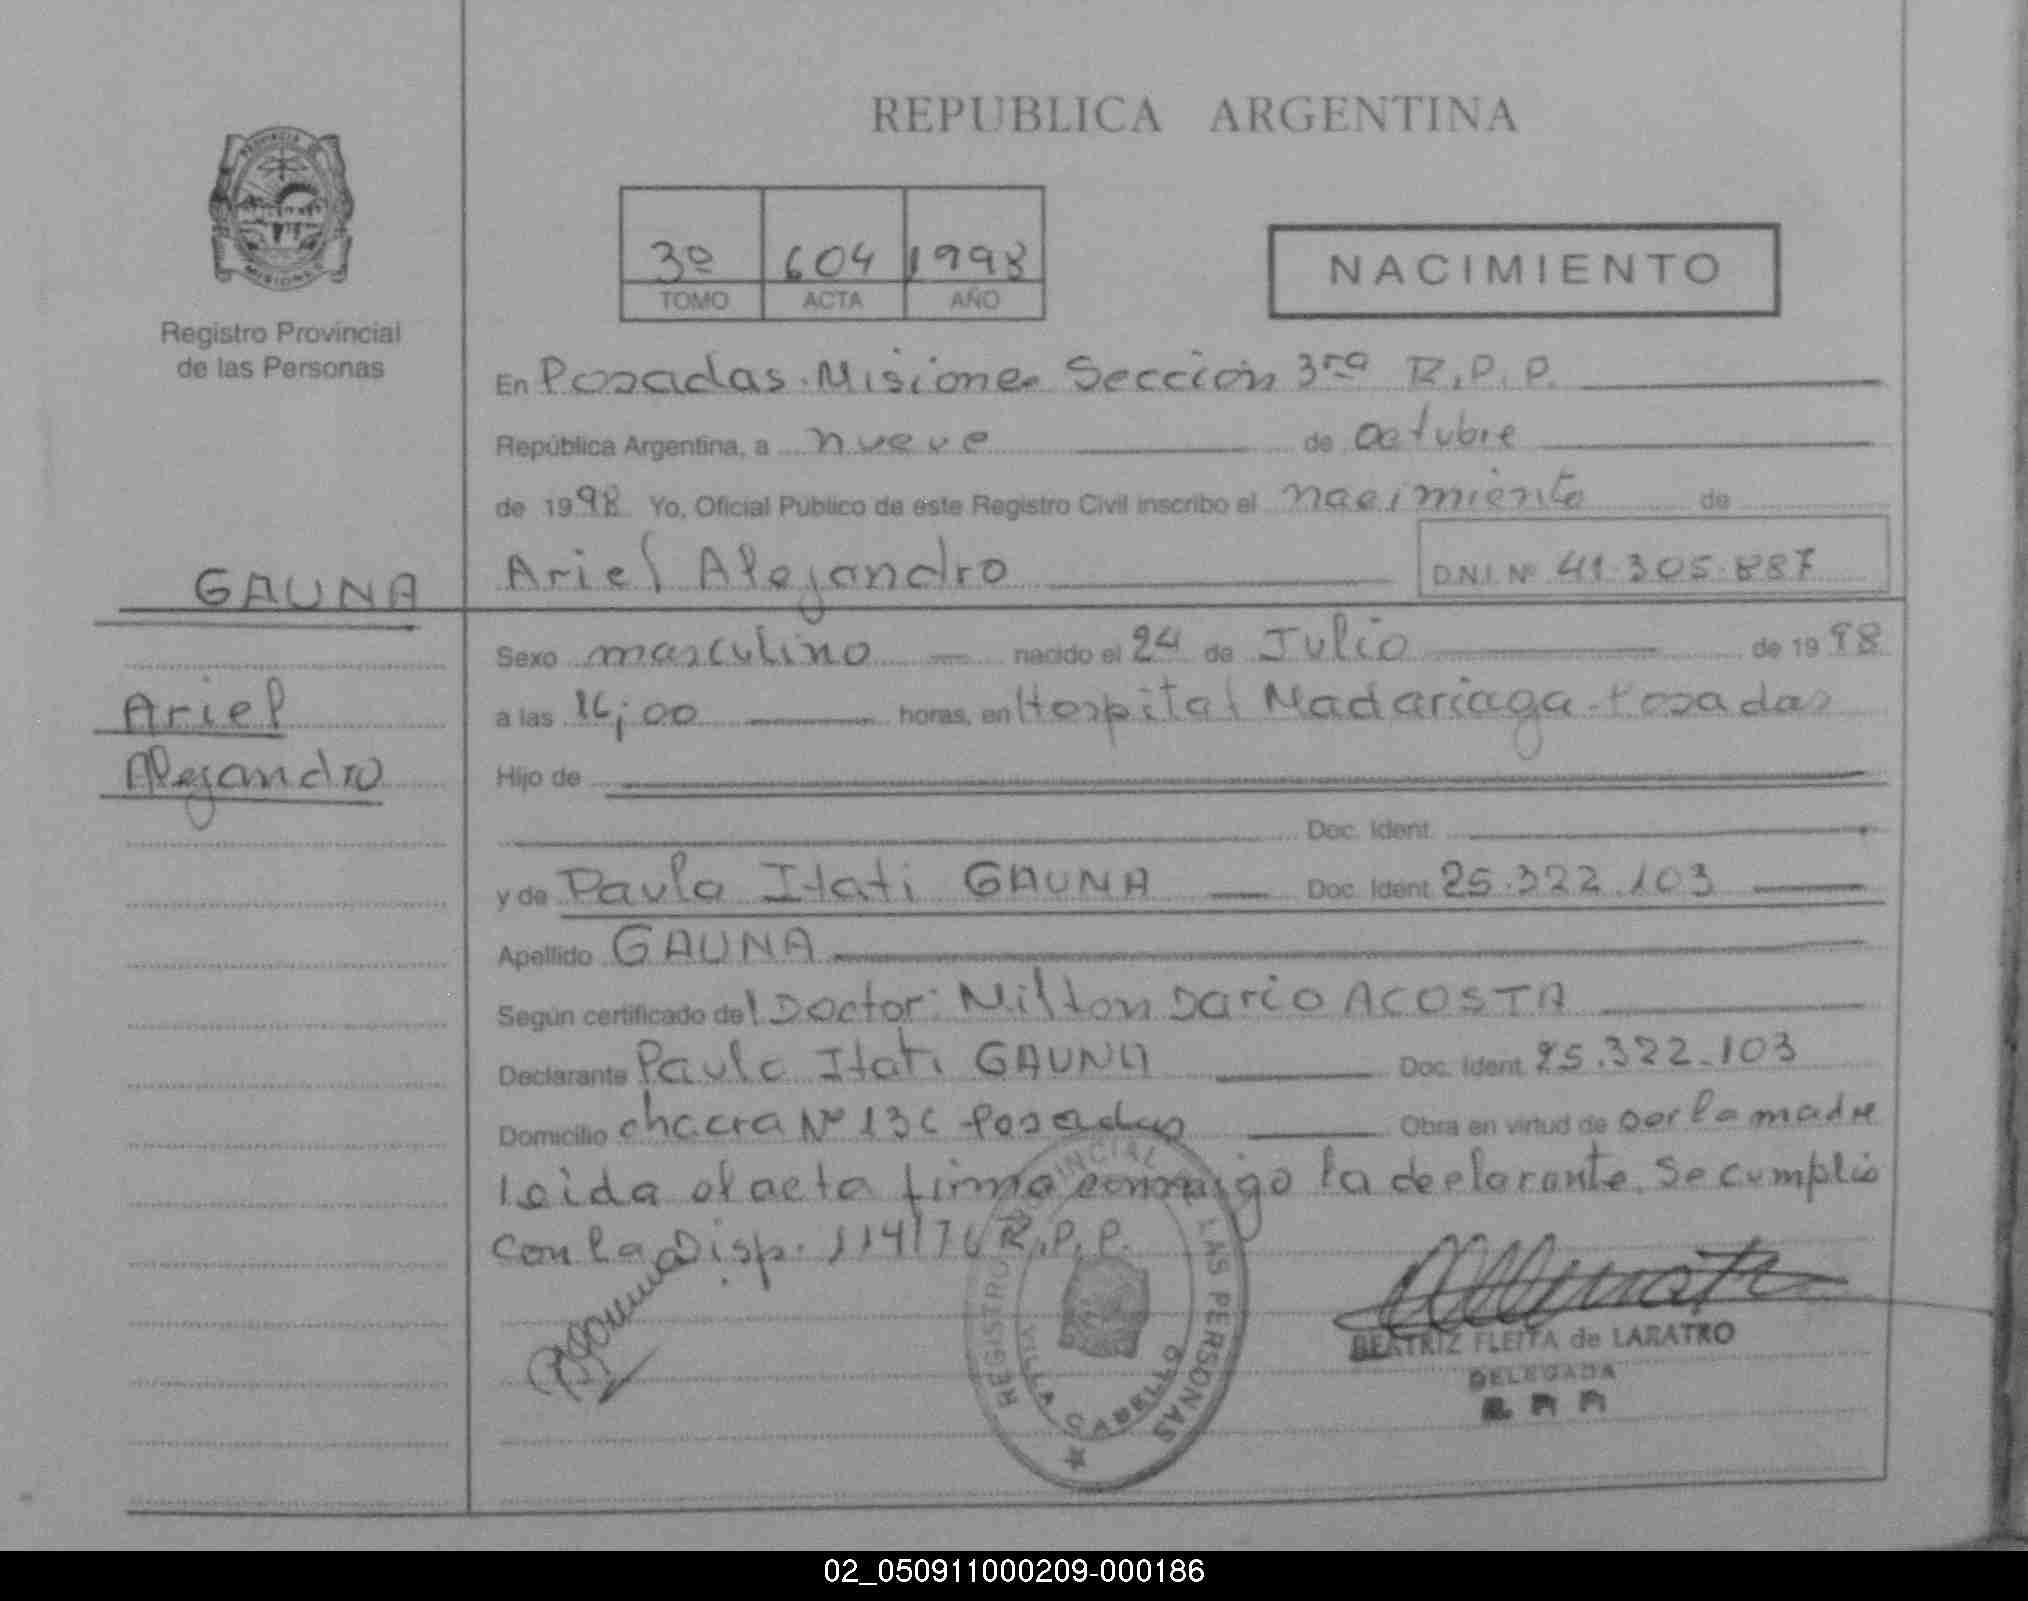 REPUBLICA ARGENTINA
PROVINCIA DE
MISIONES
Registro Provincial
de las Personas
3º 604 1998
TOMO ACTA AÑO
NACIMIENTO
En Posadas. Misiones Sección 3ra R.P.P.
República Argentina, a nueve de octubre
de 1998 Yo, Oficial Público de este Registro Civil inscribo el nacimiento de
GAUNA
Ariel Alejandro D.N.I. Nº 41.305.887
Sexo masculino nacido el 24 de Julio de 1998
Ariel
a las 16;00 horas, en Hospital Madariaga-Posadas
Alejandro
Hijo de
Doc. Ident.
y de Paula Itati GAUNA Doc. Ident 25.322.103
Apellido GAUNA
Según certificado del Doctor: Milton Dario ACOSTA
Declarante Paula Itati GAUNA Doc. Ident. 25.322.103
Domicilio chacra Nº 136 Posadas Obra en virtud de ser la madre
leida el acta firma conmigo la declarante. Se cumplio
con la Disp. 114/76 R.P.P.
REGISTRO PROVINCIAL LAS PERSONAS
VILLA CABELLO
BEATRIZ FLEITA de LARATRO
DELEGADA
02_050911000209-000186